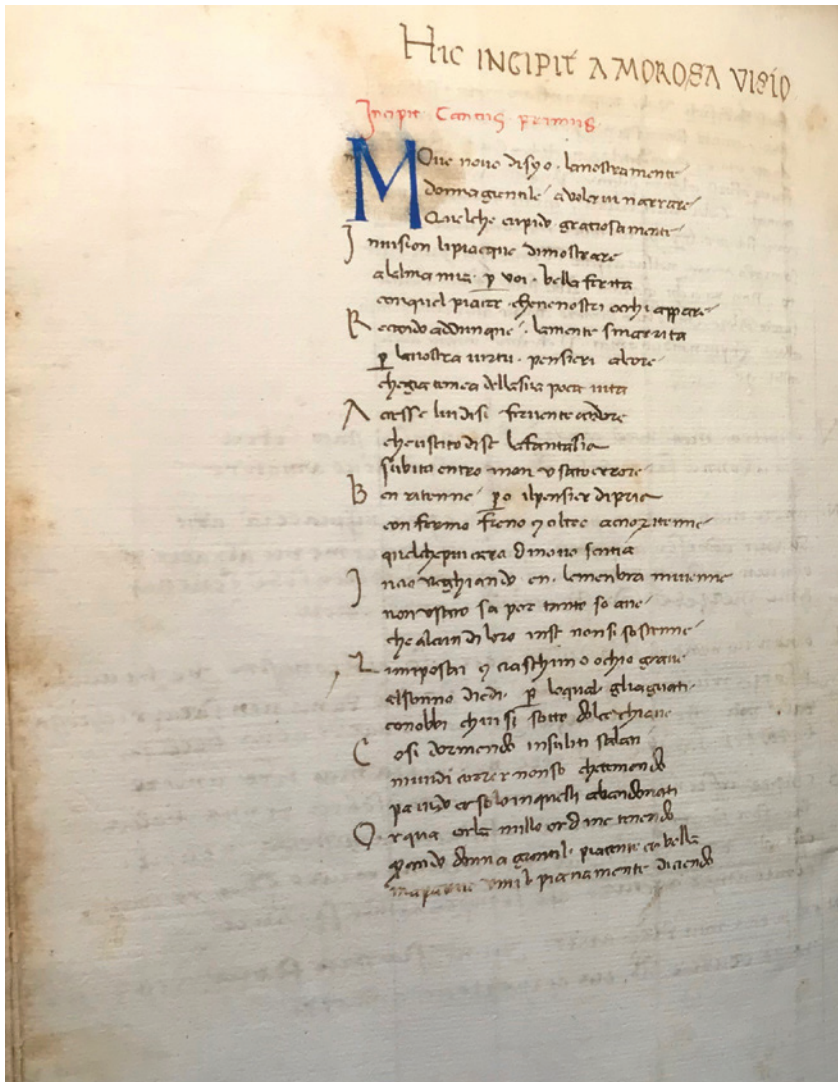 HIC INCIPIT AMOROSA VISIO
Incipit Cantus primus
MOve novo disyo lanostramente
donna gientile a voler vi narrare
Quelche cupido gratiosamente
In vision lipiacque dimostrare
alalma mia p voi bella ferita
conquel piacer chene nostri occhi appare
Recando addunque lamente smarrita
p lanostra virtu pensieri alcore
chegia temea dellasua poca vita
Accese lui disi fervente ardore
cheuscito dise lafantasia
subito entro in non usato errore
Ben ritenne po ilpensier dipria
con fermo freno et oltre acio ritenne
quelchepiu cara dinovo sentia
In cio veghiando en lemembra mivenne
non usato sapor tanto soave
che alcun di loro inse non si sostenne
Li mi posai et ciaschuno ochio grave
alsonno diedi p loqual gliaguati
conobbi chiusi sotto dolce chiave
Cosi dormendo insuliti salati
mi vidi correr nonso chetemendo
pavido et solo inquelli abandonati
Or qua orla nullo ordine tenendo
quando donna gentil piacente et bella
maparve umil pianamente dicendo